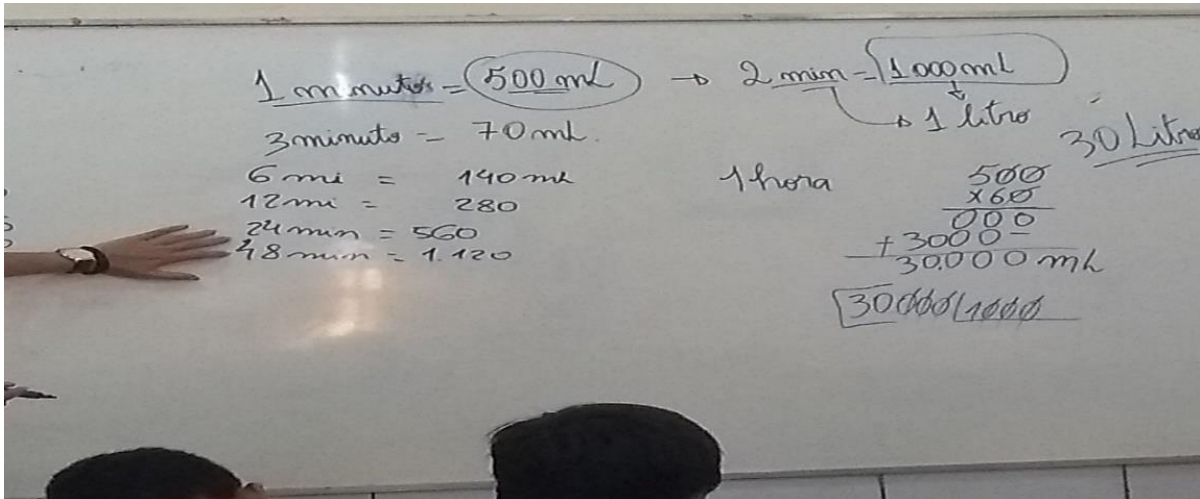 1 minutos = 500 mL → 2 min = 1000 mL
→ 1 litro
3 minuto = 70 mL.
6 mi = 140 mL
12 mi = 280
24 min = 560
48 min = 1.120
30 Litros
1 hora
500
x60
000
+3000-
30.000 mL
30000 1000